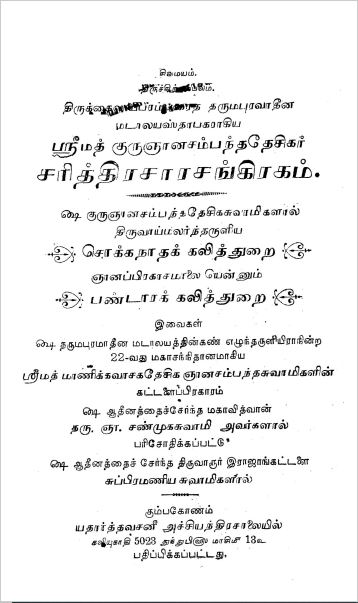 சிவமயம்.
திருச்சிற்றம்பலம்.
தருமபுரவாதீன
மடாலயஸ்தாபகராகிய
ஸ்ரீமத் குருஞானசம்பந்ததேசிகர்
சரித்திரசாரசங்கிரகம்.
ஷெ குருஞானசம்பந்ததேசிகசுவாமிகளால்
திருவாய்மலர்ந்தருளிய
சொக்கநாதக் கலித்துறை
ஞானப்பிரகாசமாலை யென்னும்
பண்டாரக் கலித்துறை
இவைகள்
ஷெ தருமபுரமாதீன மடாலயத்தின்கண் எழுந்தருளியிராநின்ற
22-வது மகாசந்நிதானமாகிய
ஸ்ரீமத் மாணிக்கவாசகதேசிக ஞானசம்பந்தசுவாமிகளின்
கட்டளைப்பிரகாரம்
ஷெ ஆதீனத்தைச்சேர்ந்த மகாவித்வான்
தரு. ஞா. சண்முகசுவாமி அவர்களால்
பரிசோதிக்கப்பட்டு
ஷெ ஆதீனத்தைச் சேர்ந்த திருவாரூர் இராஜாங்கட்டளை
சுப்பிரமணிய சுவாமிகளால்
கும்பகோணம்
யதார்த்தவசனீ அச்சியந்திரசாலையில்
கலியுகாதி 5023 மாசிமீ 13உ
பதிப்பிக்கப்பட்டது.